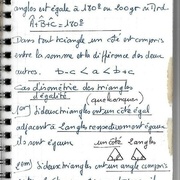 angles est égale à 180° ou 200 gr ou π rd.
Â+B̂+Ĉ=180°
Dans tout triangle un côté est compris
entre la somme et la différence des deux
autres. b-c < a < b+c
Cas d'isométrie des triangles
d'égalité (quelconques)
1er) Si deux triangles ont un côté égal
adjacent à 2 angles respectivement égaux
ils sont égaux un côté 2 angles
2em) Si deux triangles ont un angle compris